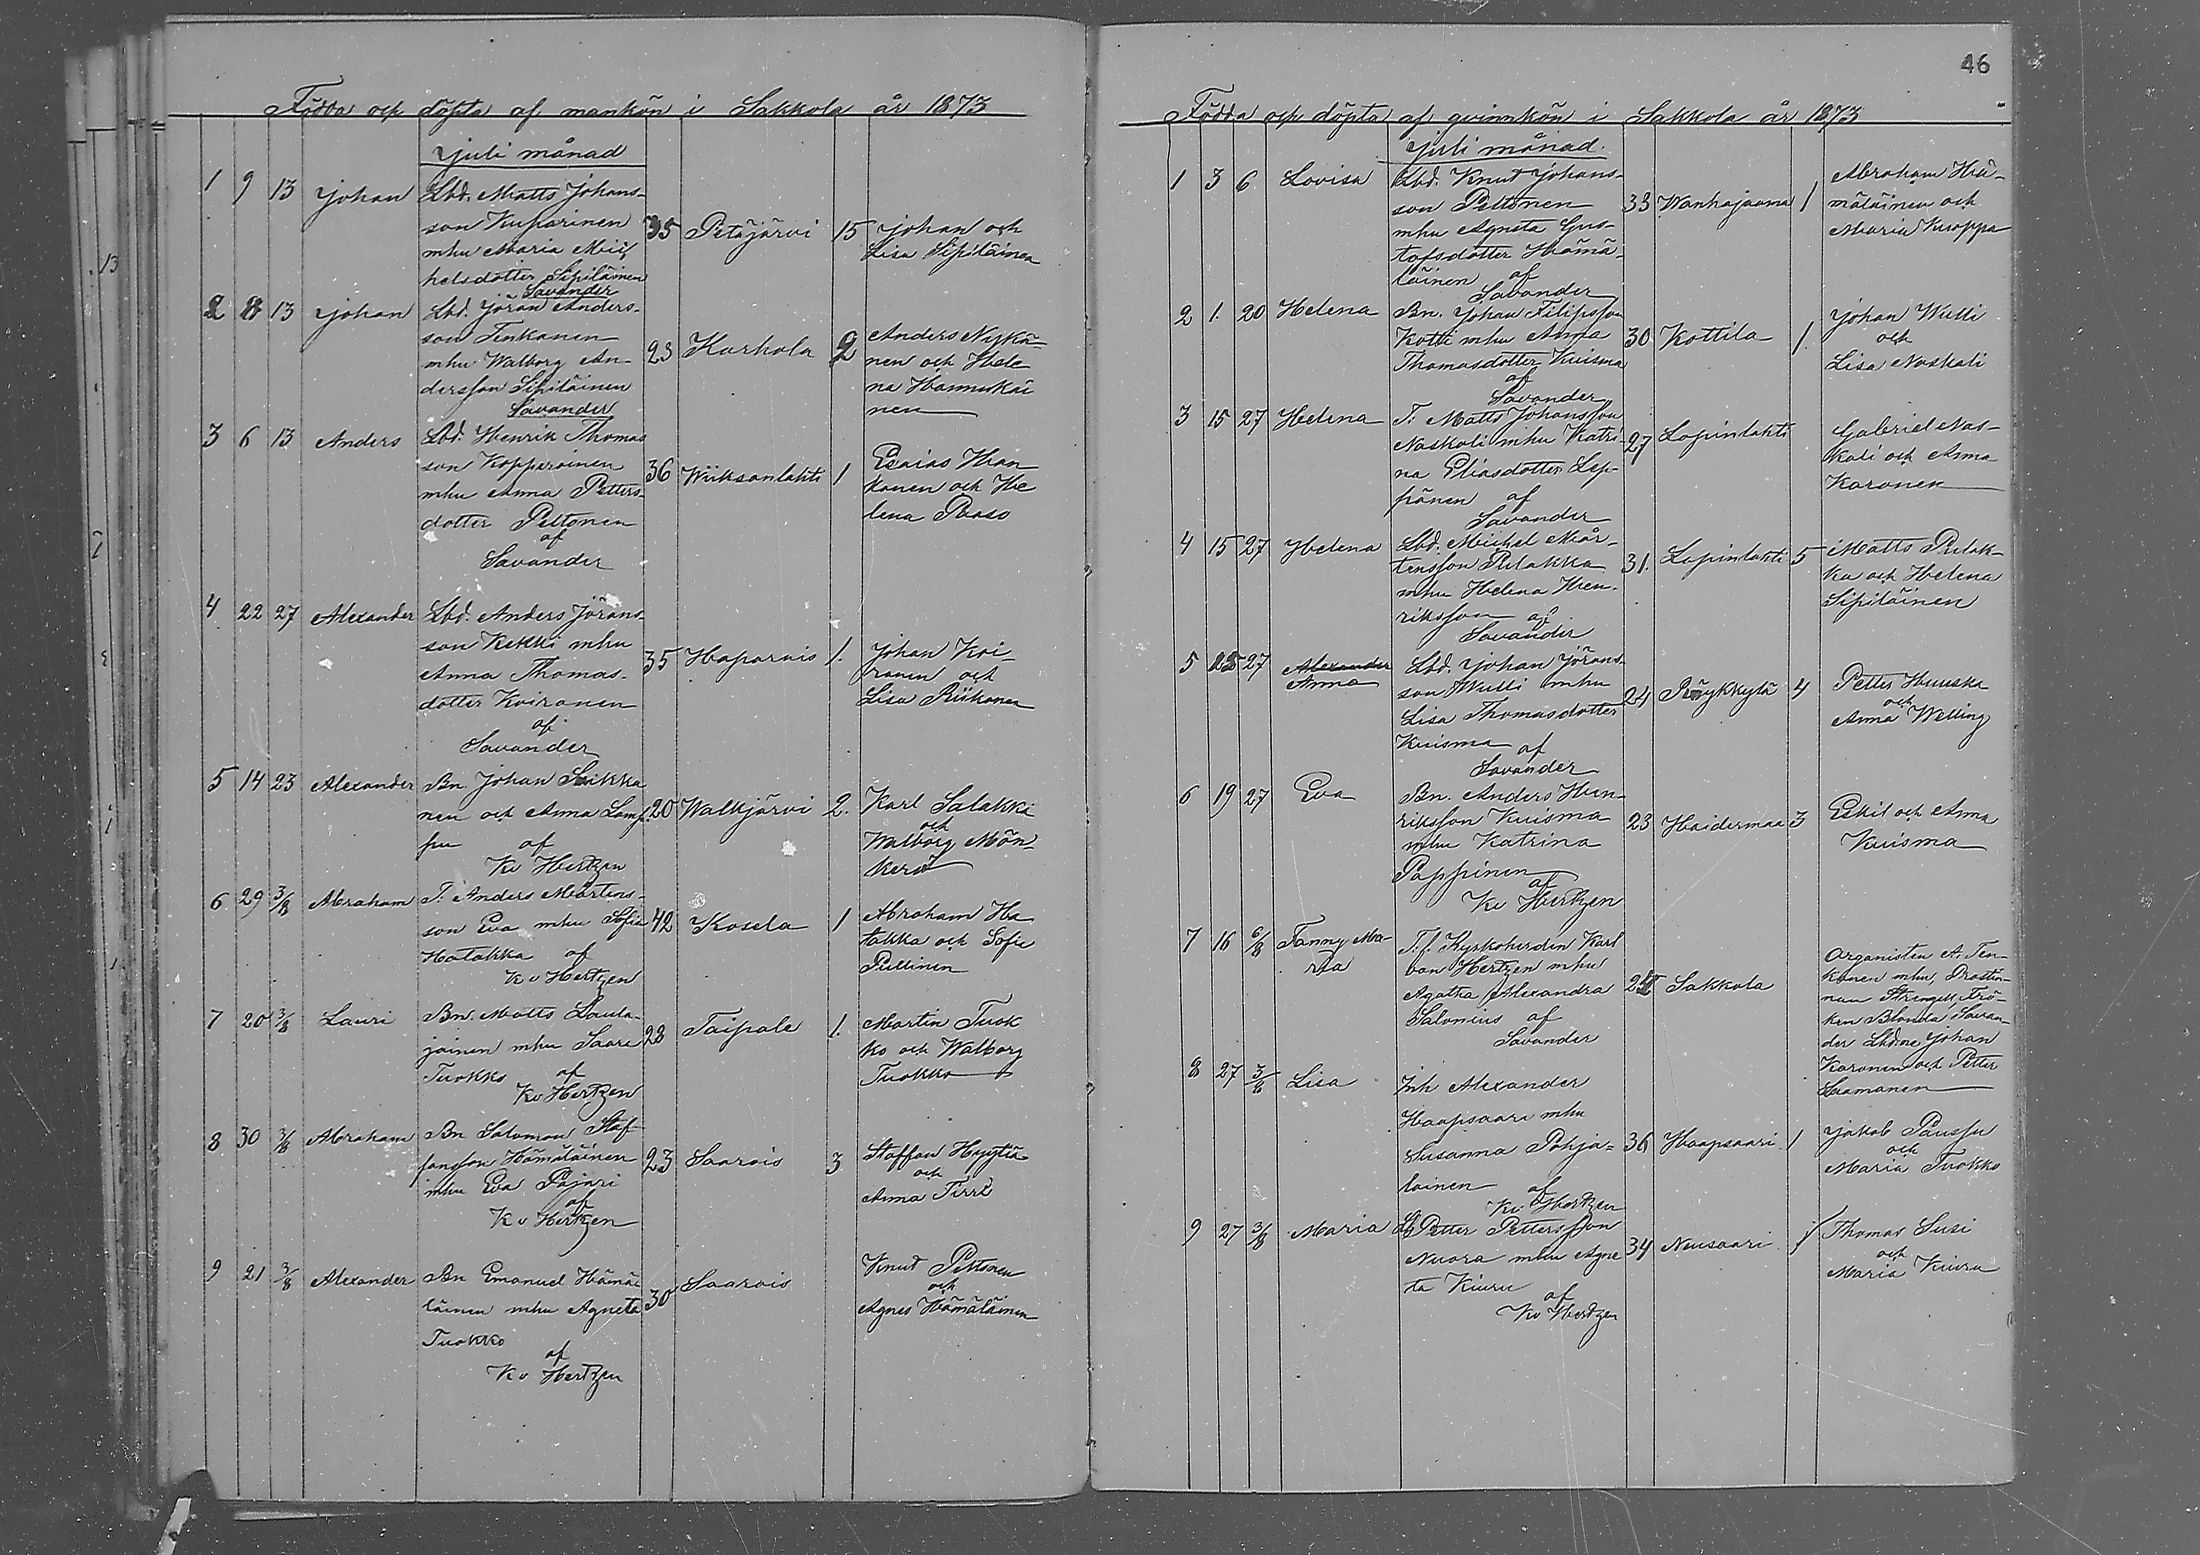 46
Födda och döpta af mankön i Sakkola år 1873
juli månad
1 9 13 Johan Lbd. Matts Johans-
son Kuparinen
mhu Maria Mic-
helsdotter Sipiläinen
Savander
35 Petäjärvi 15 Johan och
Lisa Sipiläinen
2 8 13 Johan Lbd. Jöran Anders-
son Tenkanen
mhu Walborg An-
dersson Sipiläinen
Savander
23 Karhola 2 Anders Nykä-
nen och Hele
na Hannukai
nen
3 6 13 Anders Lbd. Henrik Thomas
son Kopperoinen
mhu Anna Petters-
dotter Peltonen
af
Savander
36 Wiiksanlahti 1 Esaias Han
konen och He
lena Paaso
4 22 27 Alexander Lbd. Anders Jörans-
son Kekki mhu
Anna Thomas-
dotter Koironen
af
Savander
35 Haparais 1. Johan Koi-
ronen och
Lisa Riikonen
5 14 23 Alexander Bn. Johan Seikka
nen och Anna Lamp
pu af
Kv Hertzen
20 Walkjärvi 2. Karl Salakki
och
Walborg Mön-
kerö
6 29 3/8 Abraham T. Anders Mårtens-
son Eva mhu Sofia
Hatakka af
K v Hertzen
42 Kosela 1 Abraham Ha
takka och Sofie
Pullinen
7 20 3/8 Lauri Bn. Matts Laula-
jainen mhu Saara
Tuokko af
Kv Hertzen
28 Taipale 1. Martin Tuok
ko och Walborg
Tuokko
8 30 3/8 Abraham Bn Salomon Staf-
fansson Hämäläinen
mhu Eva Pajari
af
K v Hertzen
23 Saarois 3 Staffan Hyytiä
och
Anna Tirri
9 21 3/8 Alexander Bn Emanuel Hämä
läinen mhu Agneta
Tuokko
af
K v Hertzen
30 Saarois Knut Peltonen
och
Agnes Hämäläinen
Födda och döpta af qvinnkön i Sakkola år 1873
juli månad.
1 3 6 Lovisa Lbd. Knut Johans-
son Peltonen
mhu Agneta Gus-
tafsdotter Hämä-
läinen af
Savander
33 Wanhajaama 1 Abraham Hä-
mäläinen och
Maria Kuoppa
2 1. 20 Helena Bn. Johan Filipsson
Kotti mhu Anna
Thomasdotter Kuisma
af
Savander
30 Kottila 1. Johan Wulli
och
Lisa Naskali
3 15 27 Helena T. Matts Johansson
Naskali mhu Katri-
na Eliasdotter Lep-
pänen af
Savander
27 Lapinlahti Gabriel Nas-
kali och Anna
Karonen
4 15 27 Helena Lbd. Michel Mår-
tensson Pelakka
mhu Helena Hen-
riksson af
Savander
31. Lapinlahti 5 Matts Pelak-
ka och Helena
Sipiläinen
5 25 27 Alexander
Anna
Lbd. Johan Jörans-
son Wulli mhu
Lisa Thomasdotter
Kuisma af
Savander
24 Röykkylä 4 Petter Huuska
och
Anna Welling
6 19 27 Eva Bn. Anders Hen-
riksson Kuisma
mhu Katrina
Pappinen
af
Kv Hertzen
23 Haidermaa 3 Eskil och Anna
Kuisma
7 16 6/8 Fanny Ma-
ria
T.f. Kyrkoherden Karl
von Hertzen mhu
Agatha Alexandra
Salonius af
Savander
Sakkola Organisten A. Ten-
kanen mhu, Prostin-
nan Strengell, Frö-
ken Blonda Savan-
der Lbdne Johan
Karonen och Petter
Laamanen
8 27 3/8 Lisa Inh Alexander
Haapsaari mhu
Susanna Pohja-
lainen af
Kv Hertzen
36 Haapsaari 1 Jakob Paussu
och
Maria Tuokko
9 27 3/8 Maria Lbd Petter Pettersson
Nuora mhu Agne
ta Kiuru
af
Kv Hertzen
34 Neusaari 1 Thomas Susi
och
Maria Kiuru